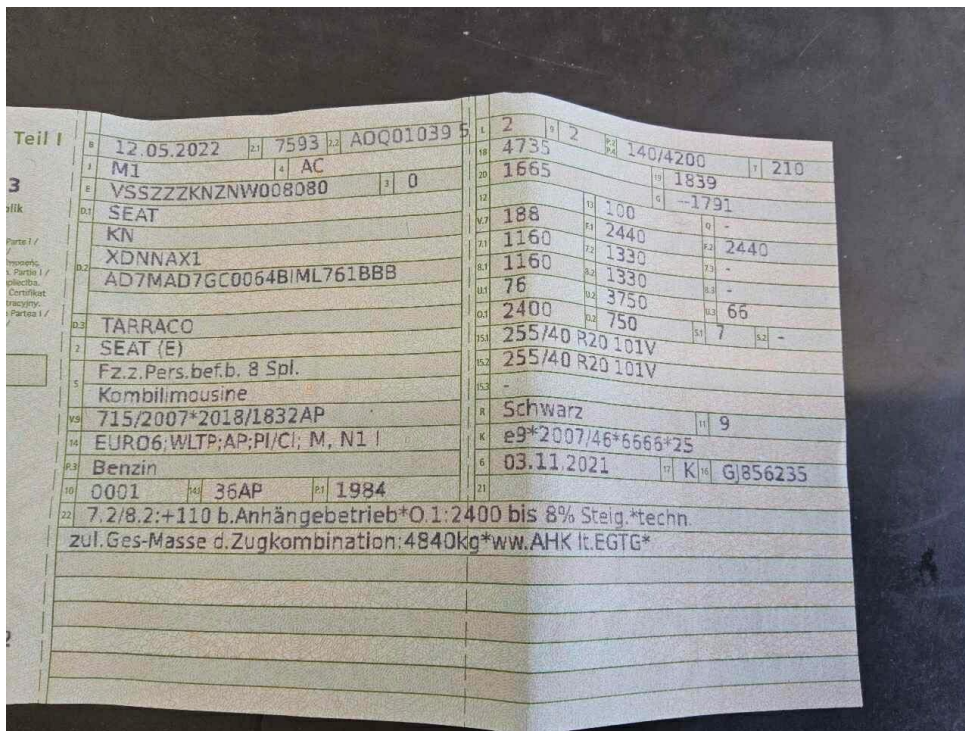 Teil I
3
B 12.05.2022 2.1 7593 2.2 ADQ01039 5
J M1 4 AC
E VSSZZZKNZNW008080 3 0
D.1 SEAT
D.2 KN
XDNNAX1
AD7MAD7GC0064BIML761BBB
D.3 TARRACO
2 SEAT (E)
5 Fz.z.Pers.bef.b. 8 Spl.
Kombilimousine
V.9 715/2007*2018/1832AP
14 EURO6;WLTP;AP;PI/CI; M, N1 I
P.3 Benzin
10 0001 14.1 36AP P.1 1984
L 2 9 2 P.2 P.4 140/4200 T 210
18 4735 19 1839
20 1665 G --1791
12 13 100 Q -
V.7 188 F.1 2440 F.2 2440
7.1 1160 7.2 1330 7.3 -
8.1 1160 8.2 1330 8.3 -
U.1 76 U.2 3750 U.3 66
O.1 2400 O.2 750 S.1 7 S.2 -
15.1 255/40 R20 101V
15.2 255/40 R20 101V
15.3 -
R Schwarz 11 9
K e9*2007/46*6666*25
6 03.11.2021 17 K 16 GJ856235
21
22 7.2/8.2:+110 b.Anhängebetrieb*O.1:2400 bis 8% Steig.*techn.
zul.Ges-Masse d.Zugkombination:4840kg*ww.AHK lt.EGTG*